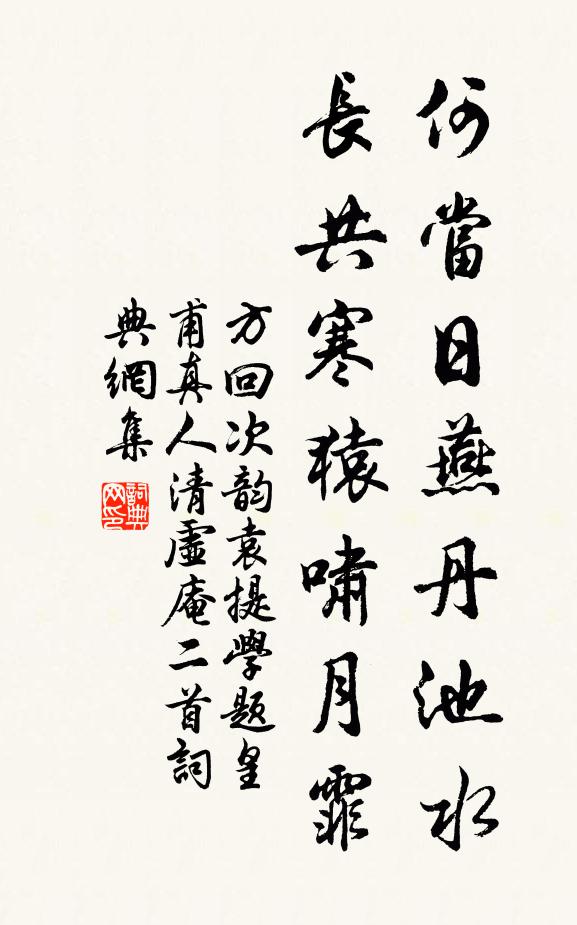 何當日燕丹池水
長共寒猿嘯月霏
方回次韵袁提學題皇
甫真人清虛庵二首詞
典網集
詞典网印